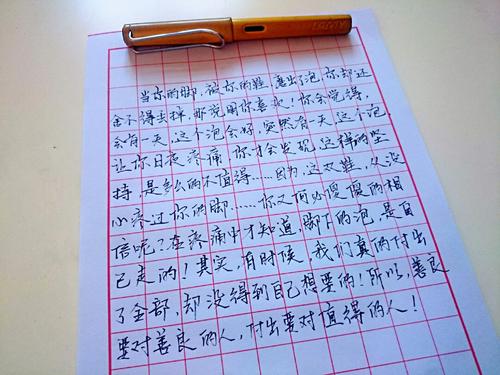 LAMY
当你的脚,被你的鞋,磨出了泡,你却还
舍不得去掉,那说明你喜欢!你会觉得,
会有一天,这个泡会好,突然有一天,这个泡
让你日夜疼痛,你才会发现,这样的坚
持,是多么的不值得……因为,这双鞋,从没
心疼过你的脚……你又何必傻傻的相
信呢?在疼痛中才知道,脚下的泡,是自
己走的!其实,有时候,我们真的付出
了全部,却没得到自己想要的!所以,善良
要对善良的人,付出要对值得的人!